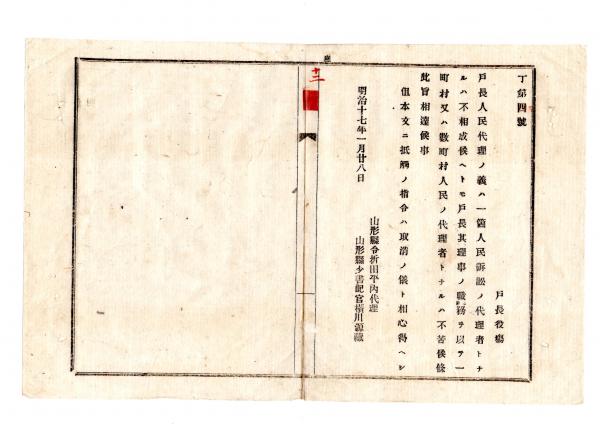 丁第四號
戸長役場
戸長人民代理ノ義ハ一箇人民訴訟ノ代理者トナ
ルハ不相成候ヘトモ戸長其理事ノ職務ヲ以テ一
町村又ハ數町村人民ノ代理者トナルハ不苦候條
此旨相達候事
但本文ニ抵觸ノ指令ハ取消ノ儀ト相心得ヘシ
明治十七年一月廿八日
山形縣令折田平內代理
山形縣少書記官橫川源藏
十二